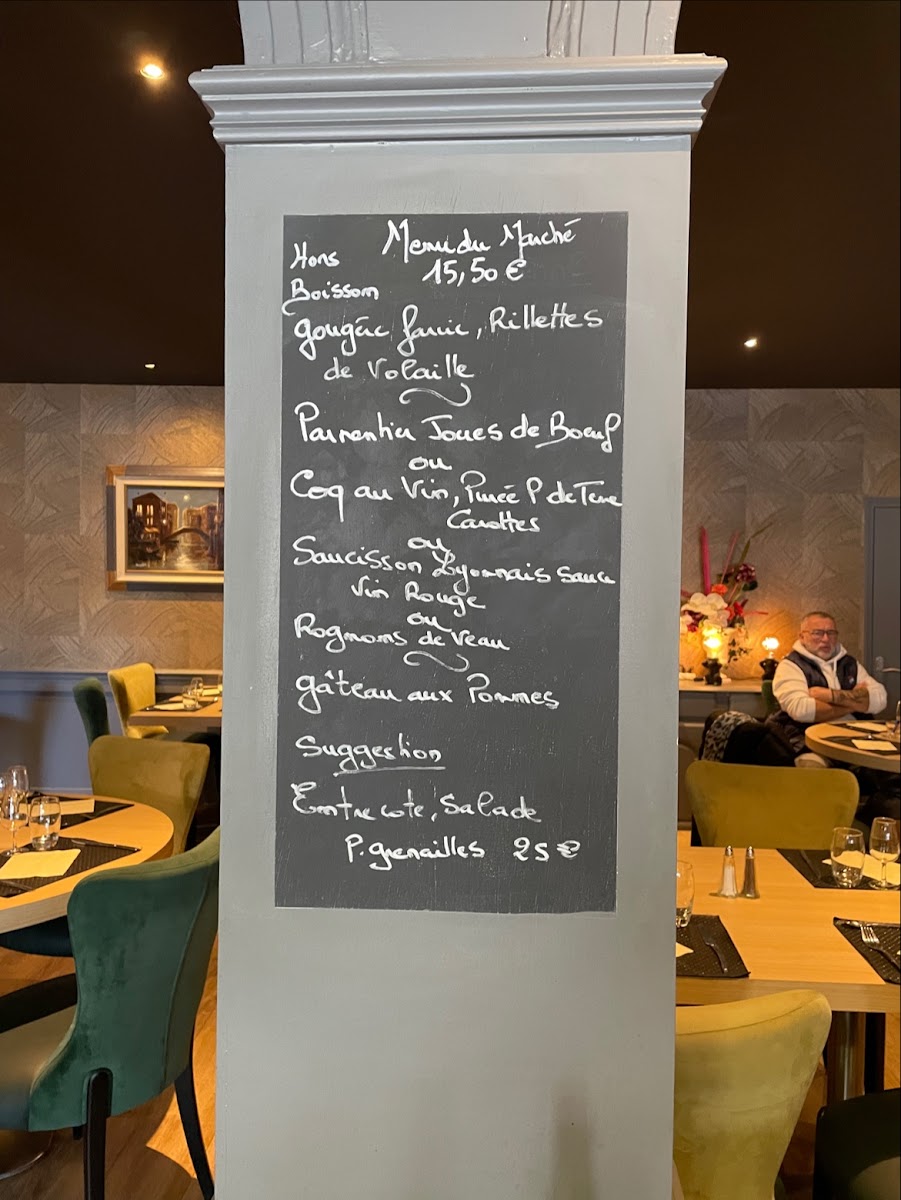 Menu du Marché
Hors
15,50 €
Boisson
gougère farcie, Rillettes
de Volaille
Parmentier Joues de Boeuf
ou
Coq au Vin, Purée P de Terre
Carottes
ou
Saucisson Lyonnais sauce
Vin Rouge
ou
Rognons de Veau
gâteau aux Pommes
Suggestion
Entrecote, Salade
P. grenailles 25 €